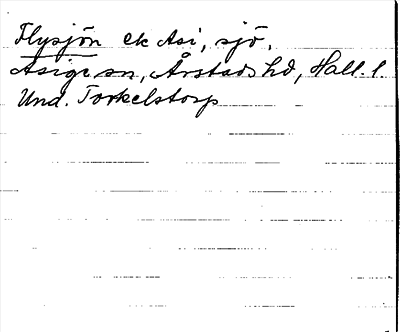 Flysjön ek Asi, sjö.
Asige sn, Årstads hd, Hall. l.
Und. Torkelstorp